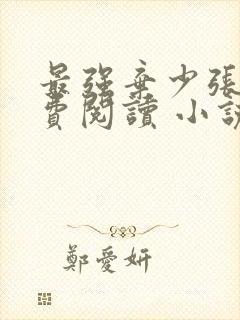 最强棄少張
費閱讀 小說
鄭愛妍